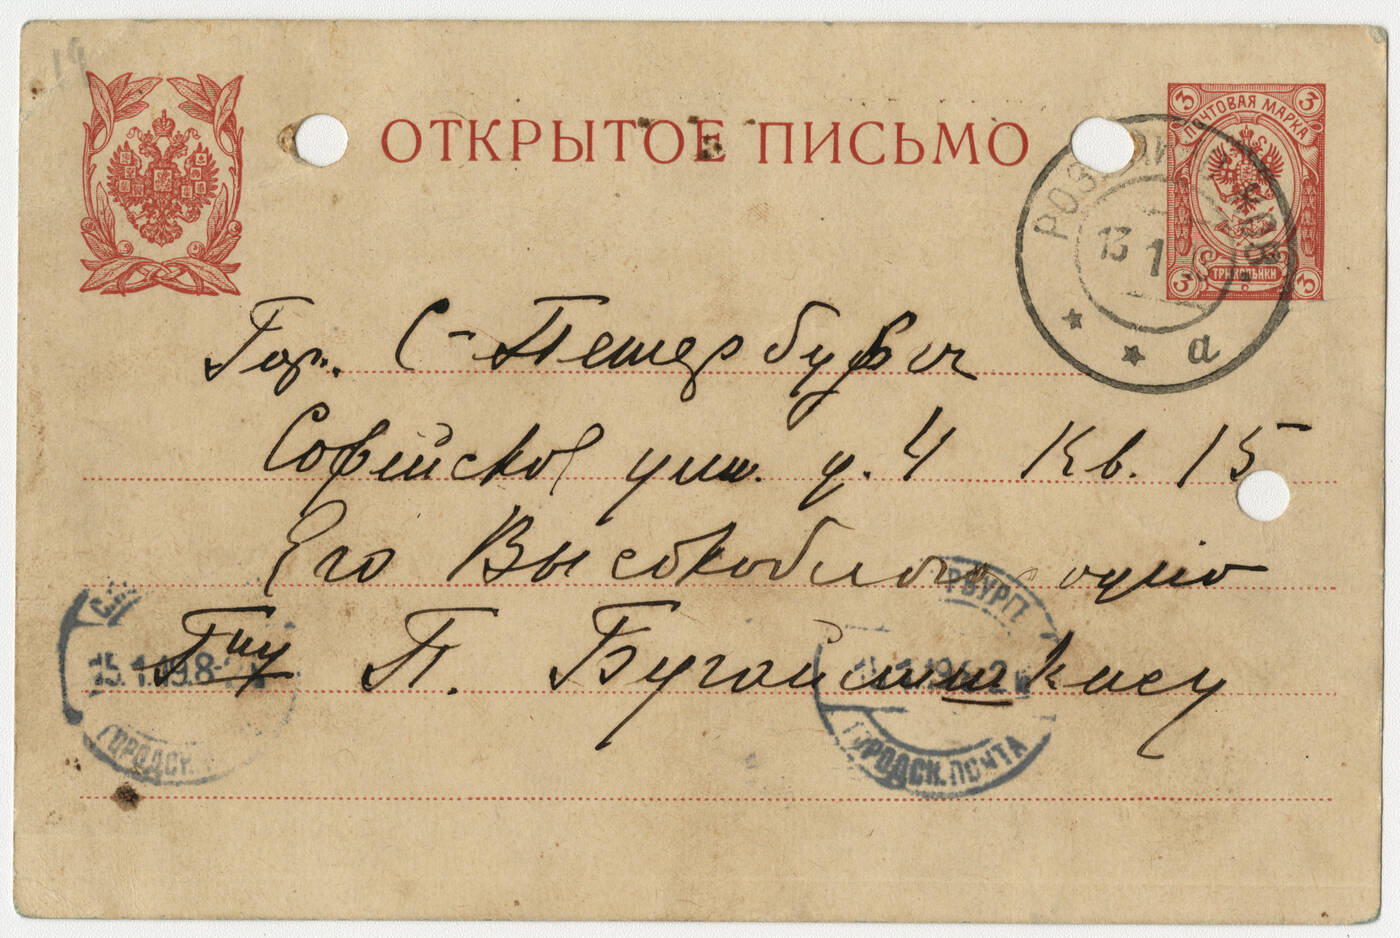 19
ОТКРЫТОЕ ПИСЬМО
3 3
ПОЧТОВАЯ МАРКА
ТРИ КОПѢЙКИ
3 3
13 1
а
Гор. С-Петербург
Софійской улиц. д. 4 Кв. 15
Его Высокоблагородию
Г-ну П. Бугай
15.1.19.8-2
ГОРОДСК.
РБУРГЪ
ГОРОДСК. ПОЧТА